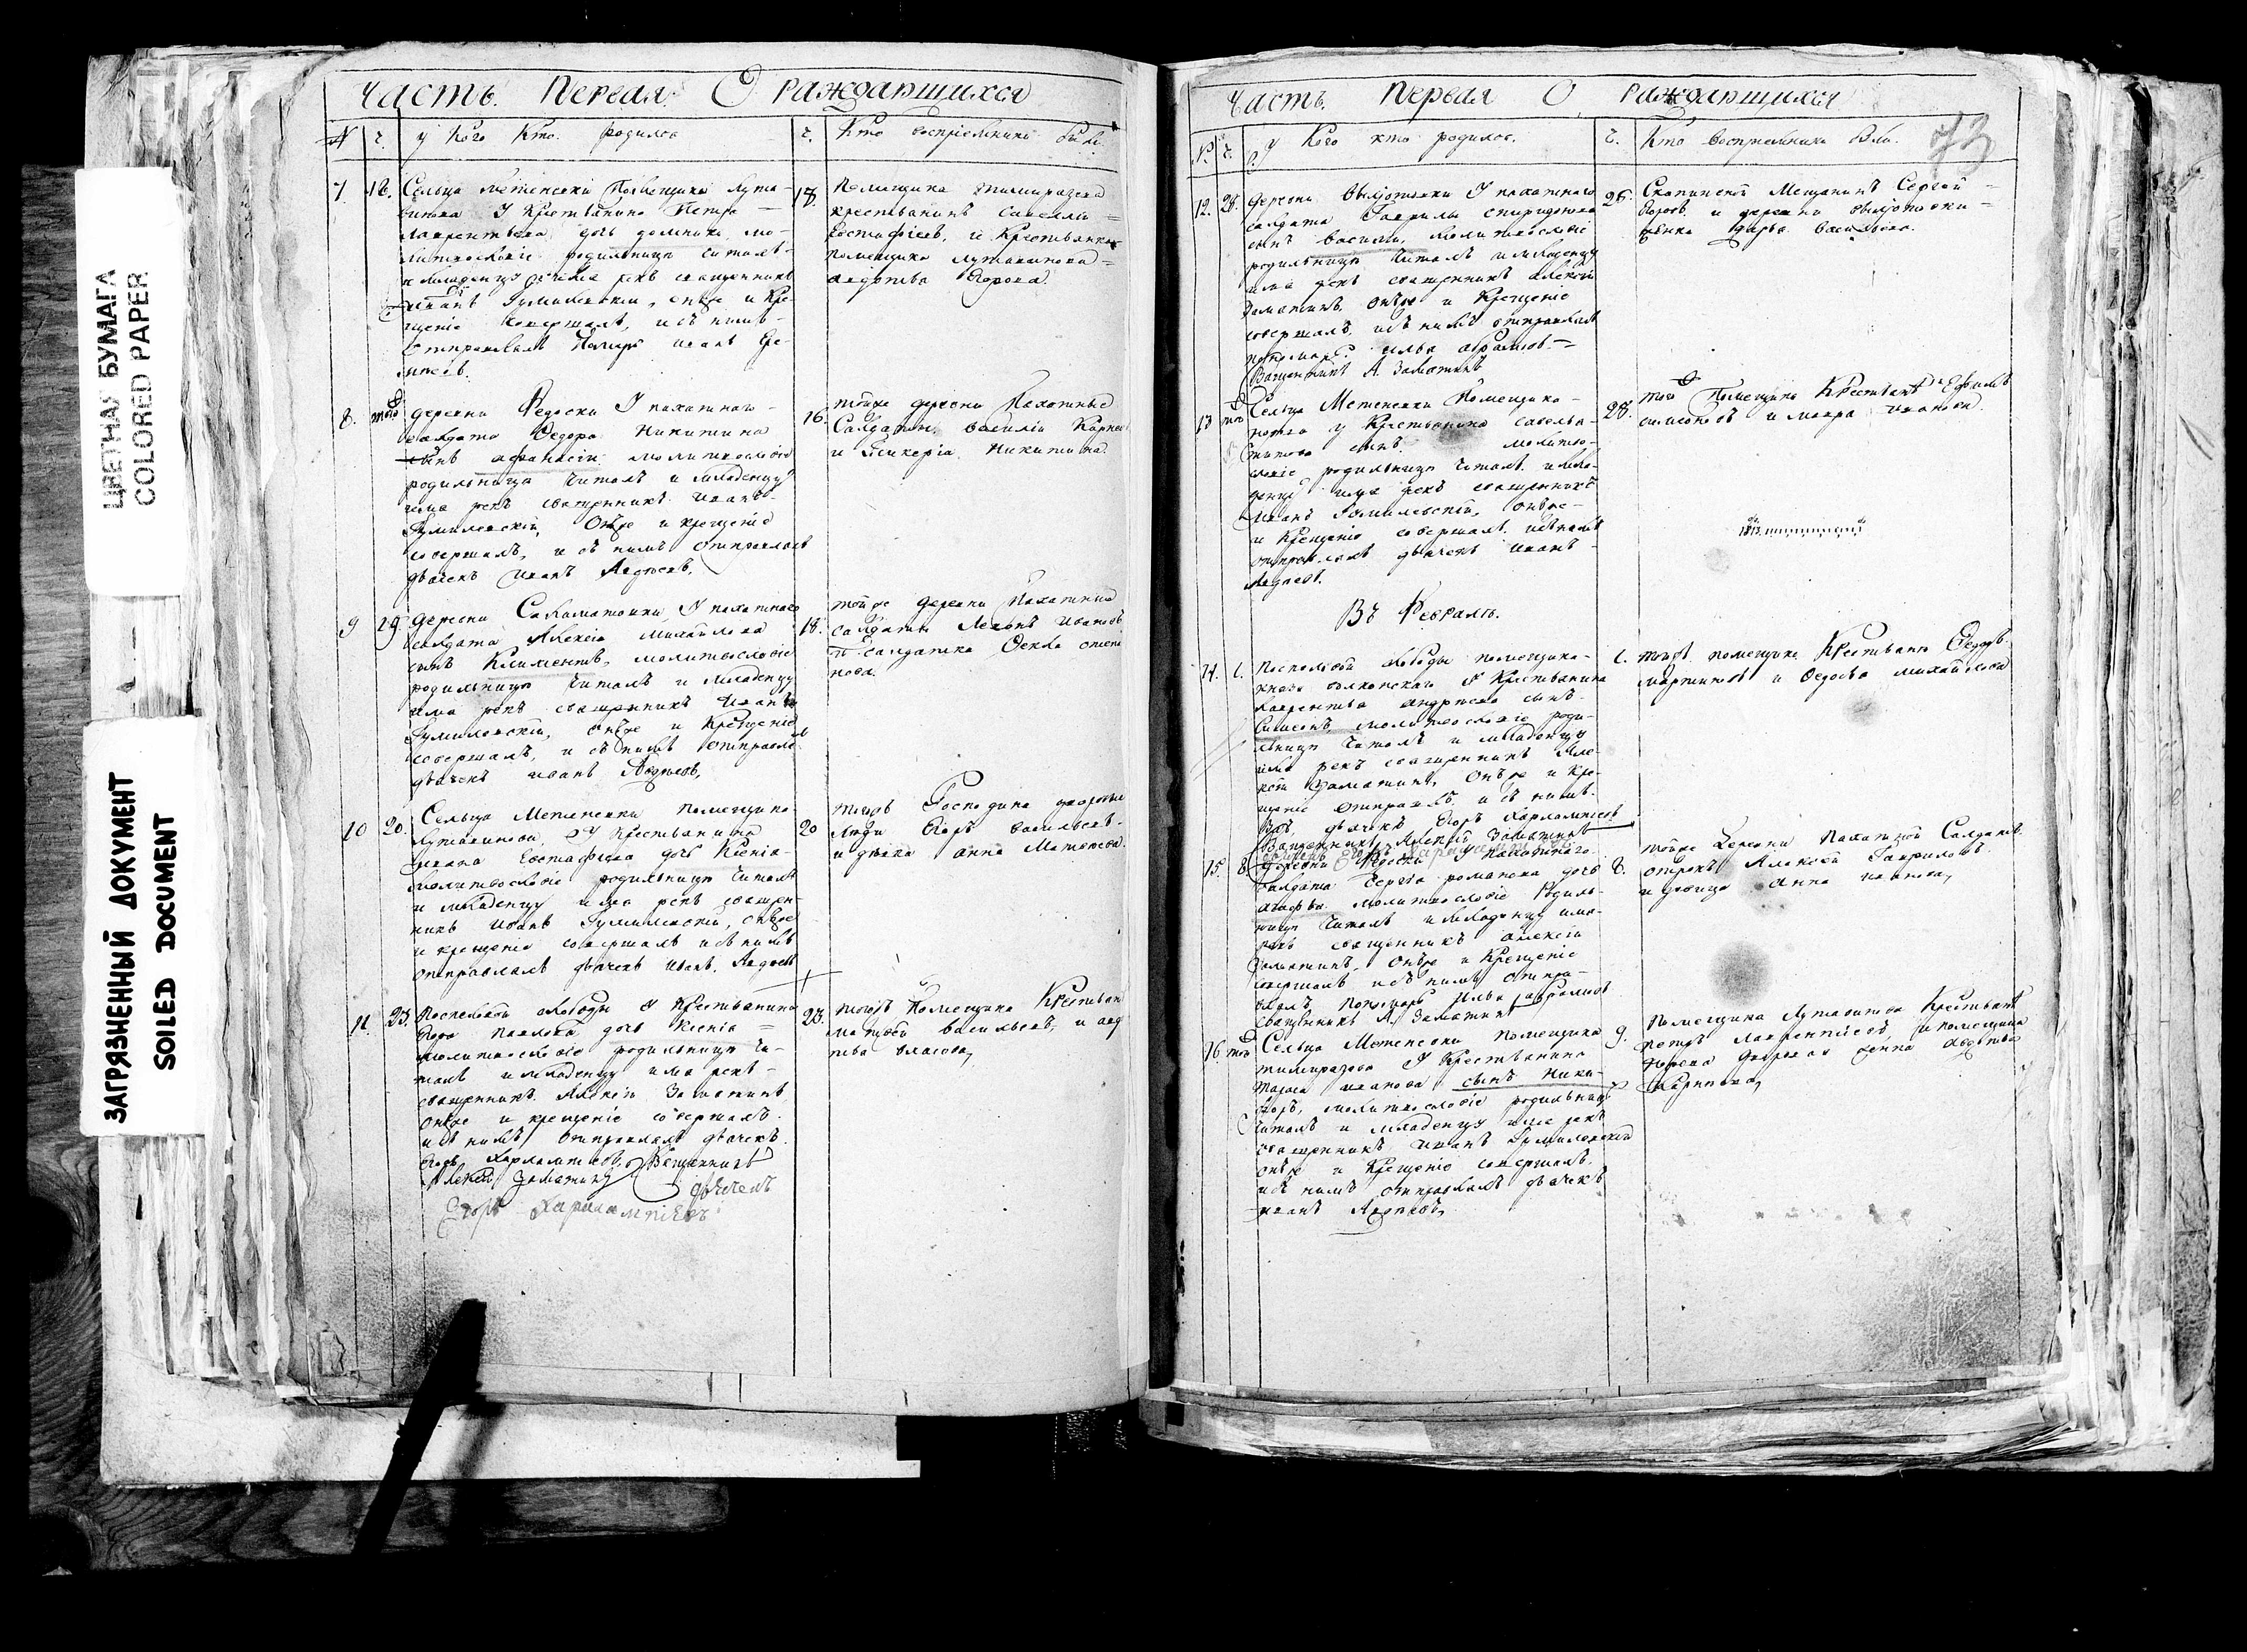 ЦВЕТНАЯ БУМАГА
COLORED PAPER
ЗАГРЯЗНЕННЫЙ ДОКУМЕНТ
SOILED DOCUMENT
Часть. Первая. О раждающихся
№ ч. у Кого Кто родился
ч. Кто восприемники были
7. 12. Сельца Метенски Помещика Лута-
винова У Крестьянина Петра
Лаврентьева дочь Домника мо-
литвословіе родильнице читалъ
и младенцу имя рекъ священникъ
Иванъ Гумилевскій, оное и Кре-
щеніе совершалъ, и съ нимъ
отправлялъ Понмарь Иванъ
18. Помещика Тимирязева
крестьянинъ Савелій
Евстафіевъ, и Крестьянка
помещика Лутавинова
Авдотья Егорова.
8. того деревни Федоски У пахатнаго
салдата Федора Никитина
сынъ Афанасій молитвословіе
родильнице читалъ и младенцу
имя рекъ священникъ Иванъ
Гумилевскій, Оное и крещеніе
совершалъ, и съ нимъ отправлялъ
дьячекъ Иванъ Авдѣевъ.
16. тойже деревни Пахатные
Салдатъ Василій Карпов
и Гликерія Никитина.
9 19. деревни Саламатовки У пахатнаго
салдата Алексія Михайлова
сынъ Климентъ, молитвословіе
родильнице читалъ и младенцу
имя рекъ священникъ Иванъ
Гумилевскій, оное и крещеніе
совершалъ, и съ нимъ отправлялъ
дьячекъ Иванъ Авдѣевъ,
18. тойже деревни Пахатные
салдаты Леонъ Ивановъ
и салдатка Фекла
10 20. Сельца Метенски помещика
Лутавинова У Крестьянина
Ивана Евстафіева дочь Ксенія
Молитвословіе родильнице читалъ
и младенцу имя рекъ священ-
никъ Иванъ Гумилевскій, оное
и крещеніе совершалъ и съ нимъ
отправлялъ дьячекъ Иванъ Авдѣевъ
20 тогожъ Господина дворовые
люди Егоръ Васильевъ
и девка Анна Матвеева.
11. 23. Поспеловой слободы У крестьянина
Павлова дочь Ксенія
молитвословіе родильнице чи-
талъ и младенцу имя рекъ
священникъ Алексій Заматинъ
оное и крещеніе совершалъ
и съ нимъ отправлялъ дьячекъ
Егоръ Харлампіевъ. Священникъ
Алексій Заматинъ дьячекъ
Егоръ Харлампіевъ
23. тогожъ Помещика Крестьян
Матвей Васильевъ, и Авдо
тья Власова,
Часть. Первая О раждающихся
73
№ ч. у Кого кто родился.
ч. Кто восприемники были.
12. 26. деревни У пахатнаго
салдата Гаврилы Спиридонова
сынъ Василій, молитвословіе
родильнице читалъ и младенцу
имя рекъ священникъ Алексій
Заматинъ, оное и Крещеніе
совершалъ, и съ нимъ отправлялъ
пономарь Илья Абрамовъ
Священникъ А. Заматинъ
26. Скопинской Мещанинъ Сергей
Егоровъ и деревни
девка Дарья Васильева.
13 того Сельца Метенски Помещика
у Крестьянина Савелья
Титова сынъ молитво-
словіе родильнице читалъ и мла-
денцу имя рекъ священникъ
Иванъ Гумилевскій, оное
и Крещеніе совершалъ и съ нимъ
отправлялъ дьячекъ Иванъ
Авдѣевъ.
28. того Помещика Крестьянинъ Ефимъ
Симеоновъ и Мавра Иванова.
Въ Февралѣ.
14. 1. Поспеловой слободы помещика
князя Волконскаго У Крестьянина
Лаврентья Андреева сынъ
Симеонъ молитвословіе роди-
льнице читалъ и младенцу
имя рекъ священникъ Але-
ксій Заматинъ, оное и кре-
щеніе отправлялъ и съ нимъ
дьячекъ Егоръ Харлампіевъ
Священникъ Алексій Заматинъ
1. тогожъ помещика Крестьяне Федоръ
Мартиновъ и Федосья Михайлова
15. 8. деревни Федоски У пахатнаго
салдата Сергея Романова дочь
Агафья молитвословіе Родиль-
нице читалъ и младенцу имя
рекъ священникъ Алексій
Заматинъ, оное и Крещеніе
совершалъ и съ нимъ отпра-
влялъ пономарь Илья Абрамовъ
священникъ А. Заматинъ
8. тойже Деревни Пахатной Салдатъ
отрокъ Алексей Гавриловъ
и девица Анна Иванова,
16 того Сельца Метенски помещика
Тимирязева У Крестьянина
Тараса Иванова сынъ Ники-
форъ, молитвословіе родильнице
читалъ и младенцу имя рекъ
священникъ Иванъ Гумилевской
оное и крещеніе совершалъ,
и съ нимъ отправлялъ дьячекъ
Иванъ Авдѣевъ,
9. Помещика Лутавинова Крестьянинъ
Петръ Лаврентіевъ, и помещика
дворовая Анна